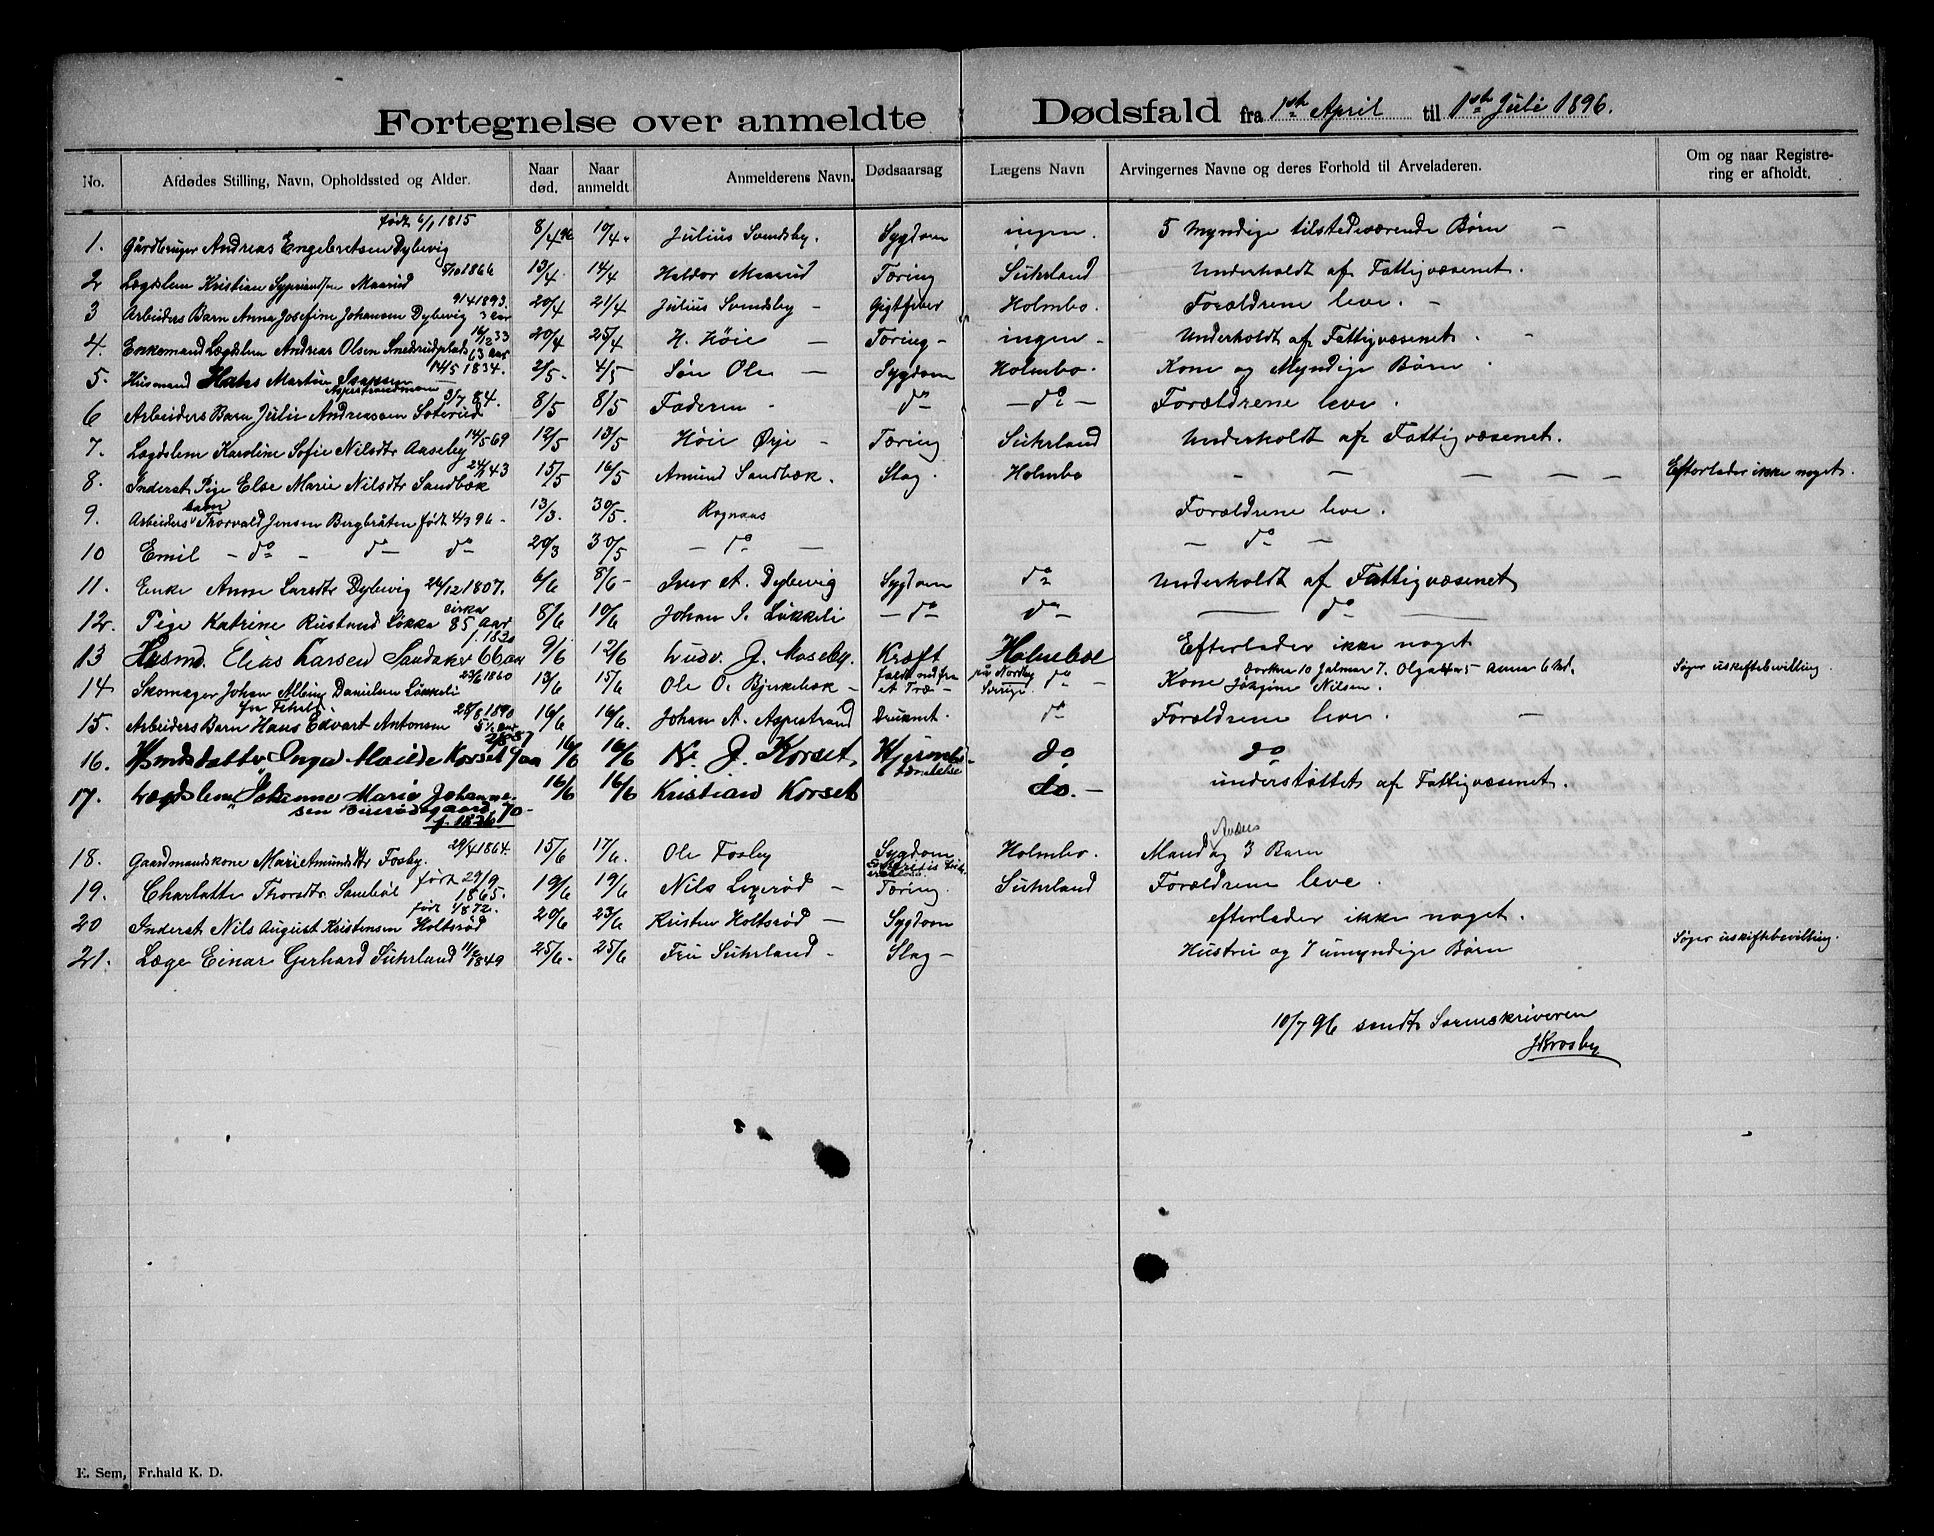 Fortegnelse over anmeldte Dødsfald fra 1ste April til 1ste Juli 1896.
No. Afdødes Stilling, Navn, Opholdssted og Alder. Naar død. Naar anmeldt Anmelderens Navn. Dødsaarsag Lægens Navn Arvingernes Navne og deres Forhold til Arveladeren. Om og naar Registrering er afholdt.
født 6/1 1815
1. Gårdbruger Andreas Engebretsen Dybevig 8/4 96 10/4 Julius Svendsby. Sygdom ingen. 5 Myndige tilstedeværende Børn —
2 Lægdslem Kristian Maarud 1866 13/4 14/4 Haldor Maarud Tæring Suhrland Underholdt af Fattigvæsenet.
9/4 1893.
3 Arbeiders Barn Anna Josefine Johansen Dybevig 3 Aar 20/4 21/4 Julius Svendsby — Gigtfeber Holmbo. Forældrene leve. —
4. Enkemand Lægdslem Andreas Olsen 20/4 25/4 H. Höie — Tæring — ingen — Underholdt af Fattigvæsenet. —
14/5 1834.
5. Husmand Hans Martin Isaksen Aspestrandmoen 2/5 4/5 Søn Ole — Sygdom Holmbo. Kone og Myndige Børn.
3/7 84.
6 Arbeiders Barn Julie Andreassen Soterud 8/5 8/5 Faderen — do — do — Forældrene leve.
14/5 69
7. Lægdslem Karoline Sofie Nilsdtr Aaseby 12/5 13/5 Höie Ørje — Tæring Suhrland Underholdt af Fattigvæsenet.
8. Inderst Pige Else Marie Nilsdtr Sandbæk 15/5 16/5 Amund Sandbæk. Slag. Holmbo — — — — — Efterlader ikke noget.
9. Arbeiders barn Thorvald Jensen Bergbråten født 4/3 96 — 13/3. 30/5. Rognaas Forældrene leve.
10 Emil — do — do do 20/3 30/5 — do — — do —
11. Enke Anne Larsdtr Dybevig 24/12 1807. 6/6 8/6 — Iver A. Dybevig Sygdom do Underholdt af Fattigvæsenet
12. Pige Katrine Rustand Løkke cirka 85 Aar 8/6 10/6 Johan I. Løkkeli — do do — do —
f. 1830
13 Husmd. Elias Larsen Sandaker 66 aar 9/6 12/6 Ludv. J. Moseby. Kræft Holmboe Efterlader ikke noget
23/6 1860
14 Skomager Johan Albing Danielsen Løkkeli 13/6 15/6 Ole O. Bjerkebæk — faldt ned fra et Træ — på Nordby Sverige do — Kone Jøhgine Nilsen. 10 Jalmar 7. Olga 5 Anna 6 Md. Søger uskiftebevilling.
15. Arbeiders Barn Hans Edvart Antonsen 28/8 1890 5½ Aar 16/6 16/6. Johan A. Aspestrand Druknet. do Forældrene leve. —
16. Hsmdsdatter Inga Maride Korset 9 aa 16/6 16/6 N. J. Korset. do do
17. Lægdslem Johanne Marie Johannesen 70 — f. 1826 16/6 16/6 Kristian Korset do. — understøttet af Fattigvæsenet.
29/4 1864.
18. Gaardmandskone Marie Amundsdtr Fosby. 15/6 17/6. Ole Fosby Sygdom Holmbo. Mand Anders og 3 Barn
19. Charlatte Thorsdtr. født 29/9 1865. 19/6 19/6 Nils Lexerød — Tæring. Suhrland Forældrene leve.
født 1/8 72.
20 Inderst Nils August Kristensen Holtsrød 20/6 23/6 Kristen Holtsrød — Sygdom efterlader ikke noget.
21. Læge Einar Gerhard Suhrland 1849 25/6 — 25/6 Fru Suhrland — Slag — Hustru og 7 umyndige Børn Søger uskiftebevilling.
10/7 96 sendt Sorenskriveren
JKrosby
E. Sem, Fr.hald K. D.